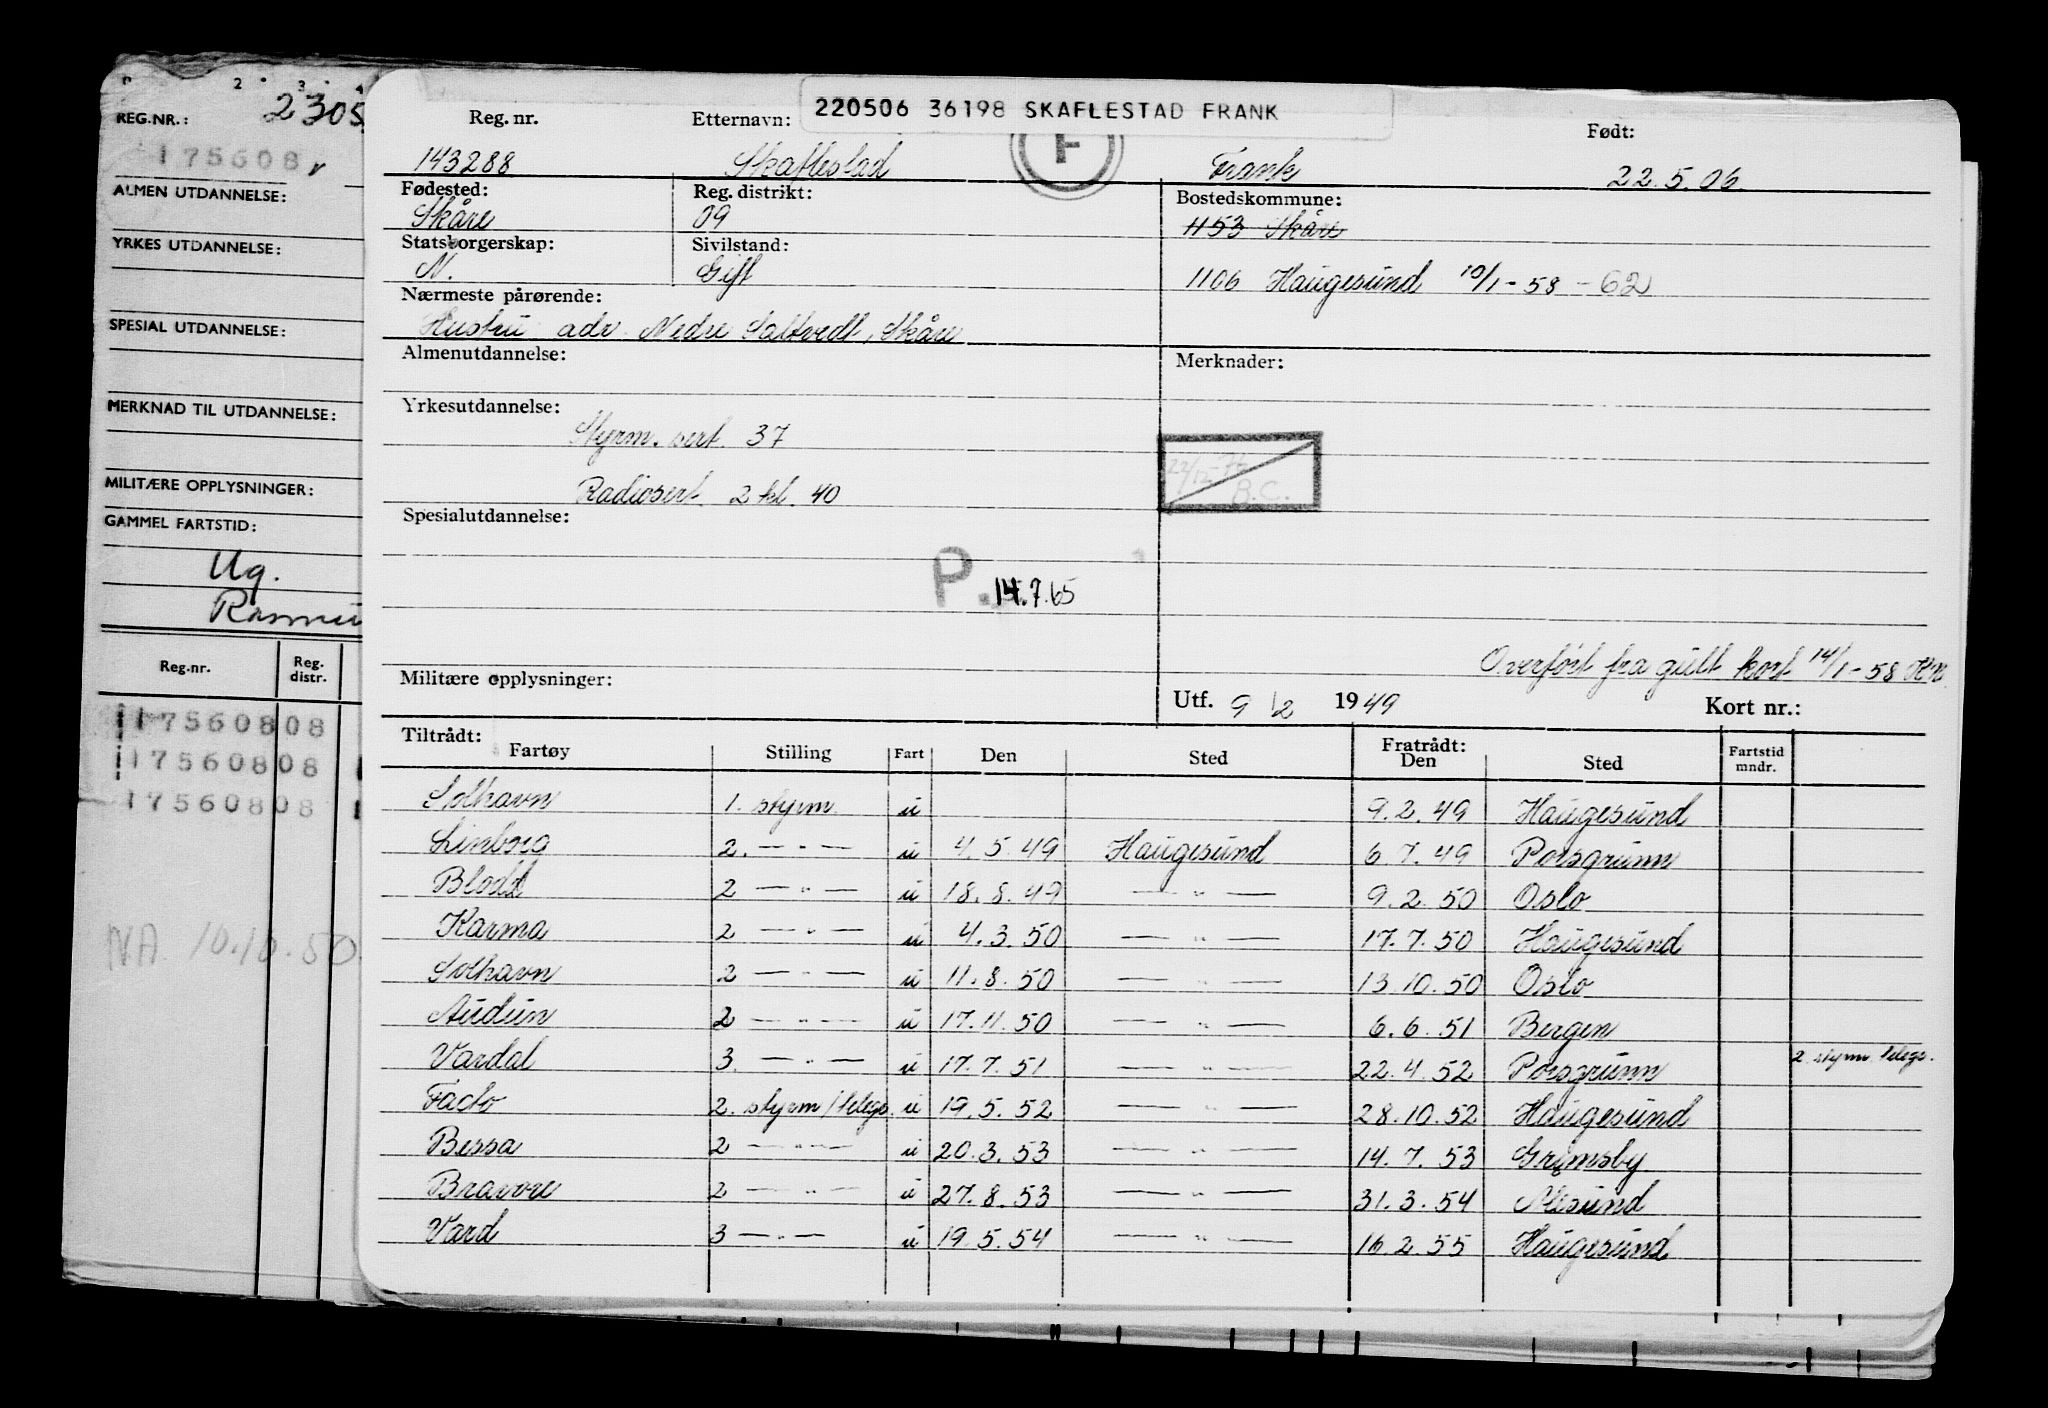 220506 36198 SKAFLESTAD FRANK
Reg. nr. Etternavn: Født:
143288 Skaflestad F Frank 22.5.06
Fødested: Reg. distrikt: Bostedskommune:
Skåre 09 1153 Skåre
Statsborgerskap: Sivilstand:
N. Gift 1106 Haugesund 10/1-58 - 62
Nærmeste pårørende:
Hustru adr. Nedre Saltvedt, Skåre
Almenutdannelse: Merknader:
Yrkesutdannelse:
Styrm. sert. 37
22/12-76 B.C.
Radiosert. 2 kl. 40
Spesialutdannelse:
P. 14.7.65
Overført fra gult kort 14/1-58
Militære opplysninger:
Utf. 9/2 1949 Kort nr.:
Tiltrådt: Fratrådt:
Fartøy Stilling Fart Den Sted Den Sted Fartstid mndr.
Solhavn 1. styrm. u 9.2.49 Haugesund
Linborg 2. — " — u 4.5.49 Haugesund 6.7.49 Porsgrunn
Blodd 2 — " — u 18.8.49 — " — 9.2.50 Oslo
Karma 2 — " — u 4.3.50 — " — 17.7.50 Haugesund
Solhavn 2 — " — u 11.8.50 — " — 13.10.50 Oslo
Audun 2 — " — u 17.11.50 — " — 6.6.51 Bergen
Vardal 3. — " — u 17.7.51 — " — 22.4.52 Porsgrunn 2 styrm. telegr.
Facto 2. styrm/telegr. u 19.5.52 — " — 28.10.52 Haugesund
Bessa 2 — " — u 20.3.53 — " — 14.7.53 Grimsby
Bravore 2 — " — u 27.8.53 — " — 31.3.54 Ålesund
Vard 3 — " — u 19.5.54 — " — 16.2.55 Haugesund
2 3 4
REG.NR.: 2305
175608
ALMEN UTDANNELSE:
YRKES UTDANNELSE:
SPESIAL UTDANNELSE:
MERKNAD TIL UTDANNELSE:
MILITÆRE OPPLYSNINGER:
GAMMEL FARTSTID:
Ug.
Reg.nr. Reg. distr.
17560808
17560808
17560808
NA 10.10.50